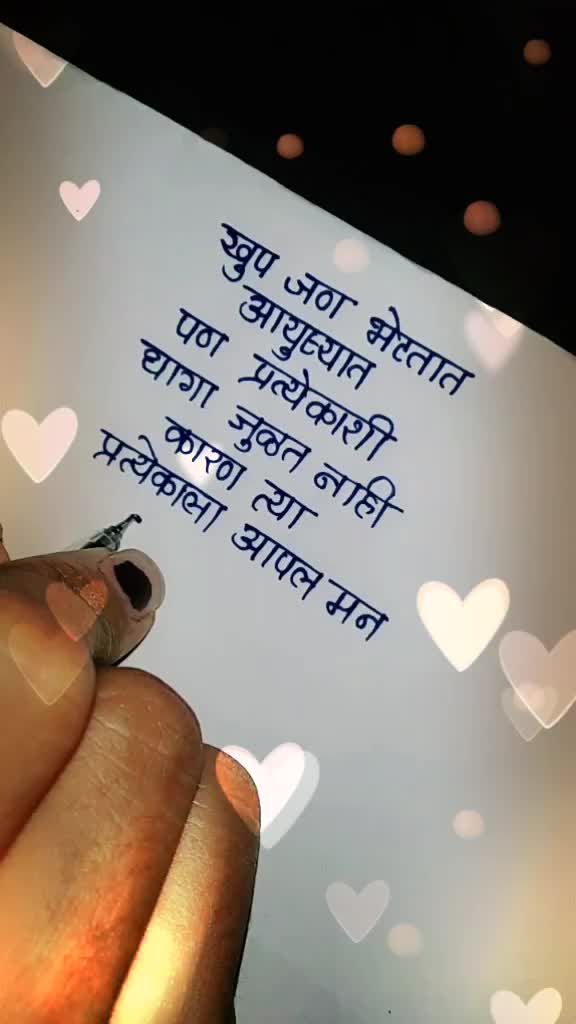 खुप जण भेटतात
आयुष्यात
पण प्रत्येकाशी
धागा जुळत नाही
कारण त्या
प्रत्येकाला आपल मन